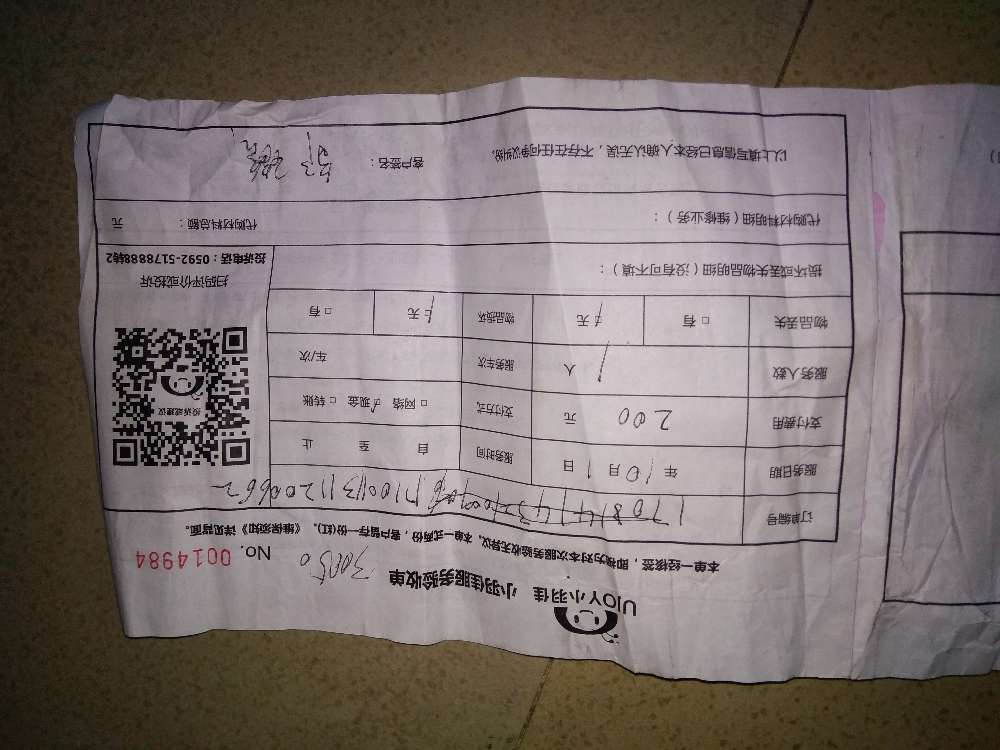 UJOY小羽佳 小羽佳服务验收单
30050
No. 0014984
本单一经核签,即视为对本次服务验收无异议。本单一式两份,客户留存一份(红)。《维保须知》详见背面。
订单编号 171001131120066
服务日期 年 10 月 1 日 服务时间 自 至 止
支付费用 200 元 支付方式 □ 网络 现金 □ 转账
服务人数 1 人 服务车次 车/次
物品丢失 □ 有 无 物品损坏 无 □ 有
投诉或建议
扫码评价或投诉
投诉电话:0592-5178888转2
损坏或丢失物品明细(没有可不填):
代购材料明细(维修业务): 代购材料总额: 元
以上填写信息已经本人确认无误,不存在任何争议纠纷。 客户签名: